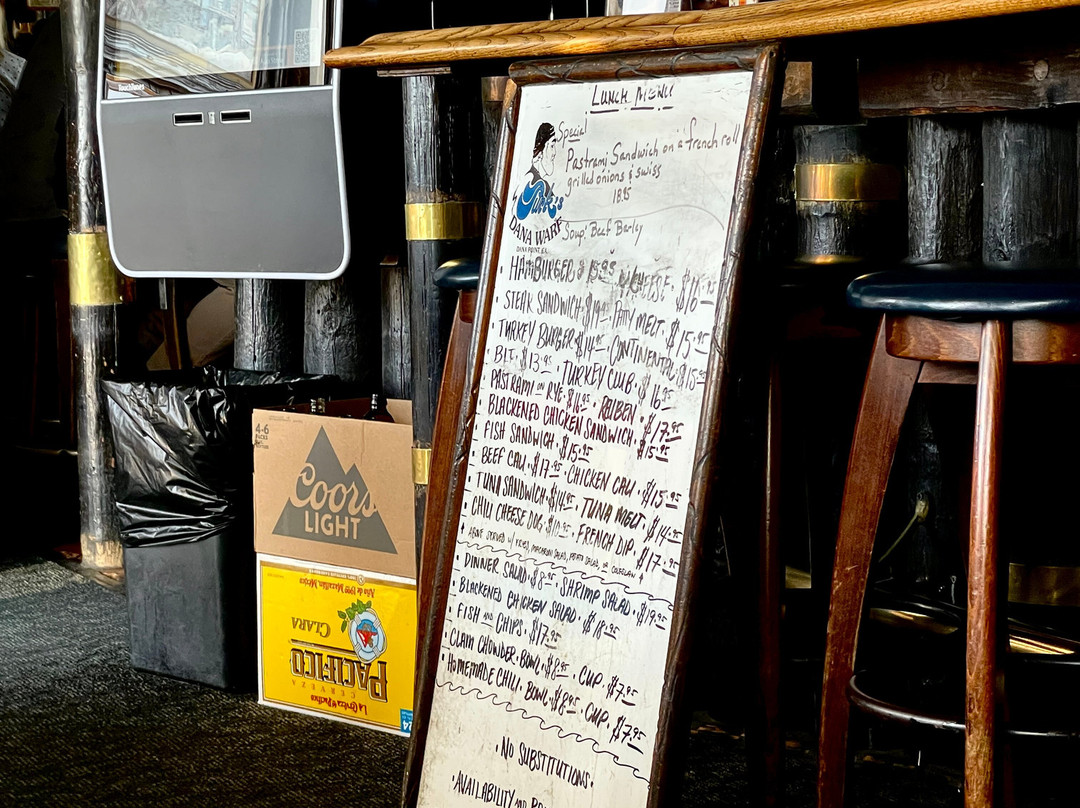 LUNCH MENU
Special
Pastrami Sandwich on a french roll
grilled onions & swiss
18.95
Turk's
DANA WARF
DANA POINT, CA
Soup: Beef Barley
• HAMBURGER $15.95 W/CHEESE • $16.95
• STEAK SANDWICH • $19.95 • PATTY MELT • $15.95
• TURKEY BURGER $14.95 • CONTINENTAL • $15.95
• BLT • $13.95 • TURKEY CLUB • $16.95
• PASTRAMI ON RYE • $16.95 • REUBEN • $17.95
• BLACKENED CHICKEN SANDWICH • $15.95
• FISH SANDWICH • $15.95
• BEEF CALI • $17.95 • CHICKEN CALI • $15.95
• TUNA SANDWICH • $14.95 • TUNA MELT • $14.95
• CHILI CHEESE DOG • $10.95 • FRENCH DIP • $17.95
ABOVE SERVED W/ FRIES, MACARONI SALAD, POTATO SALAD, OR COLESLAW
• DINNER SALAD • $8.95 • SHRIMP SALAD • $19.95
• BLACKENED CHICKEN SALAD • $18.95
• FISH AND CHIPS • $17.95
• CLAM CHOWDER • BOWL • $8.95 • CUP • $7.95
• HOMEMADE CHILI • BOWL • $8.95 • CUP • $7.95
• NO SUBSTITUTIONS •
• AVAILABILITY AND
TouchTunes
4-6
Coors
LIGHT
La Cerveza del Pacífico
CERVEZA
PACIFICO
CLARA
Año de 1900 Mazatlan, México
24